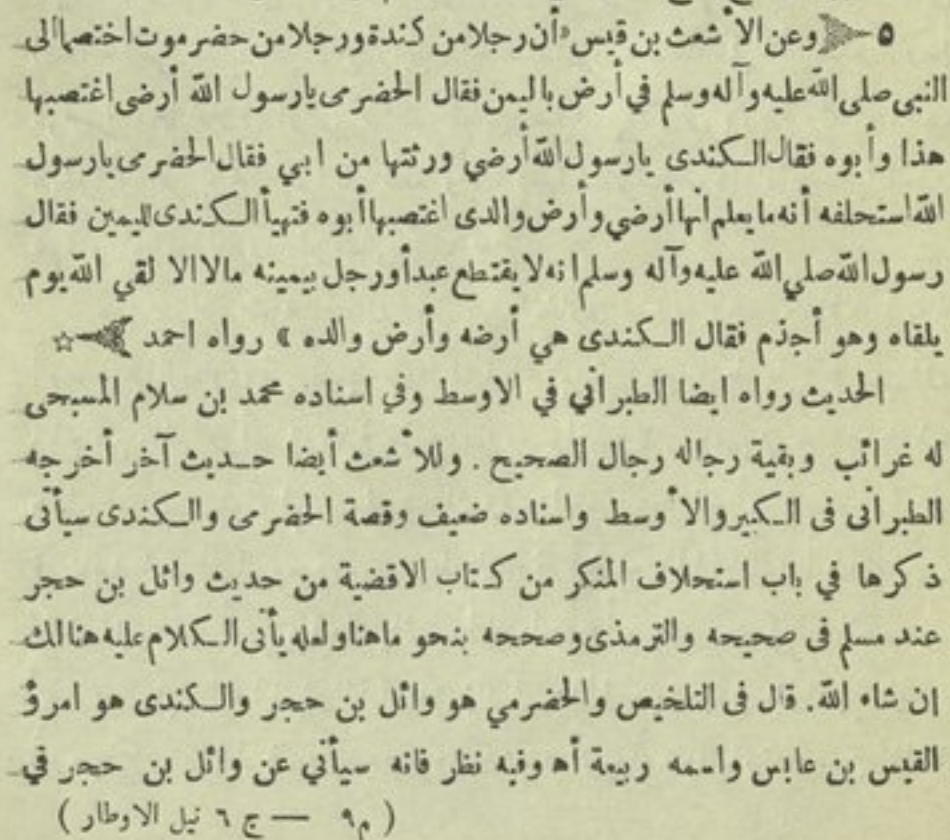 ٥ وعن الأشعث بن قيس «أن رجلا من كندة ورجلا من حضرموت اختصما الى
النبى صلى الله عليه وآله وسلم في أرض باليمن فقال الحضرمى يارسول الله أرضى اغتصبها
هذا وأبوه فقال الكندى يارسول الله أرضي ورثتها من ابي فقال الحضرمى يارسول
الله استحلفه أنه ما يعلم أنها أرضي وأرض والدى اغتصبها أبوه فتهيأ الكندى لليمين فقال
رسول الله صلي الله عليه وآله وسلم انه لا يقتطع عبد أو رجل بيمينه مالا الا لقي الله يوم
يلقاه وهو أجذم فقال الكندى هي أرضه وأرض والده » رواه احمد
الحديث رواه ايضا الطبرانى في الاوسط وفي اسناده محمد بن سلام المسبحى
له غرائب وبقية رجاله رجال الصحيح . وللأشعث أيضا حديث آخر أخرجه
الطبرانى فى الكبير والأوسط واسناده ضعيف وقصة الحضرمى والكندى سيأتى
ذكرها في باب استحلاف المنكر من كتاب الاقضية من حديث وائل بن حجر
عند مسلم فى صحيحه والترمذى وصححه بنحو ماهنا ولعله يأتى الكلام عليه هنالك
إن شاء الله. قال فى التلخيص والحضرمي هو وائل بن حجر والكندى هو امرؤ
القيس بن عابس واسمه ربيعة أه وفيه نظر فانه سيأتي عن وائل بن حجر في
( م ٩ — ج ٦ نيل الاوطار )